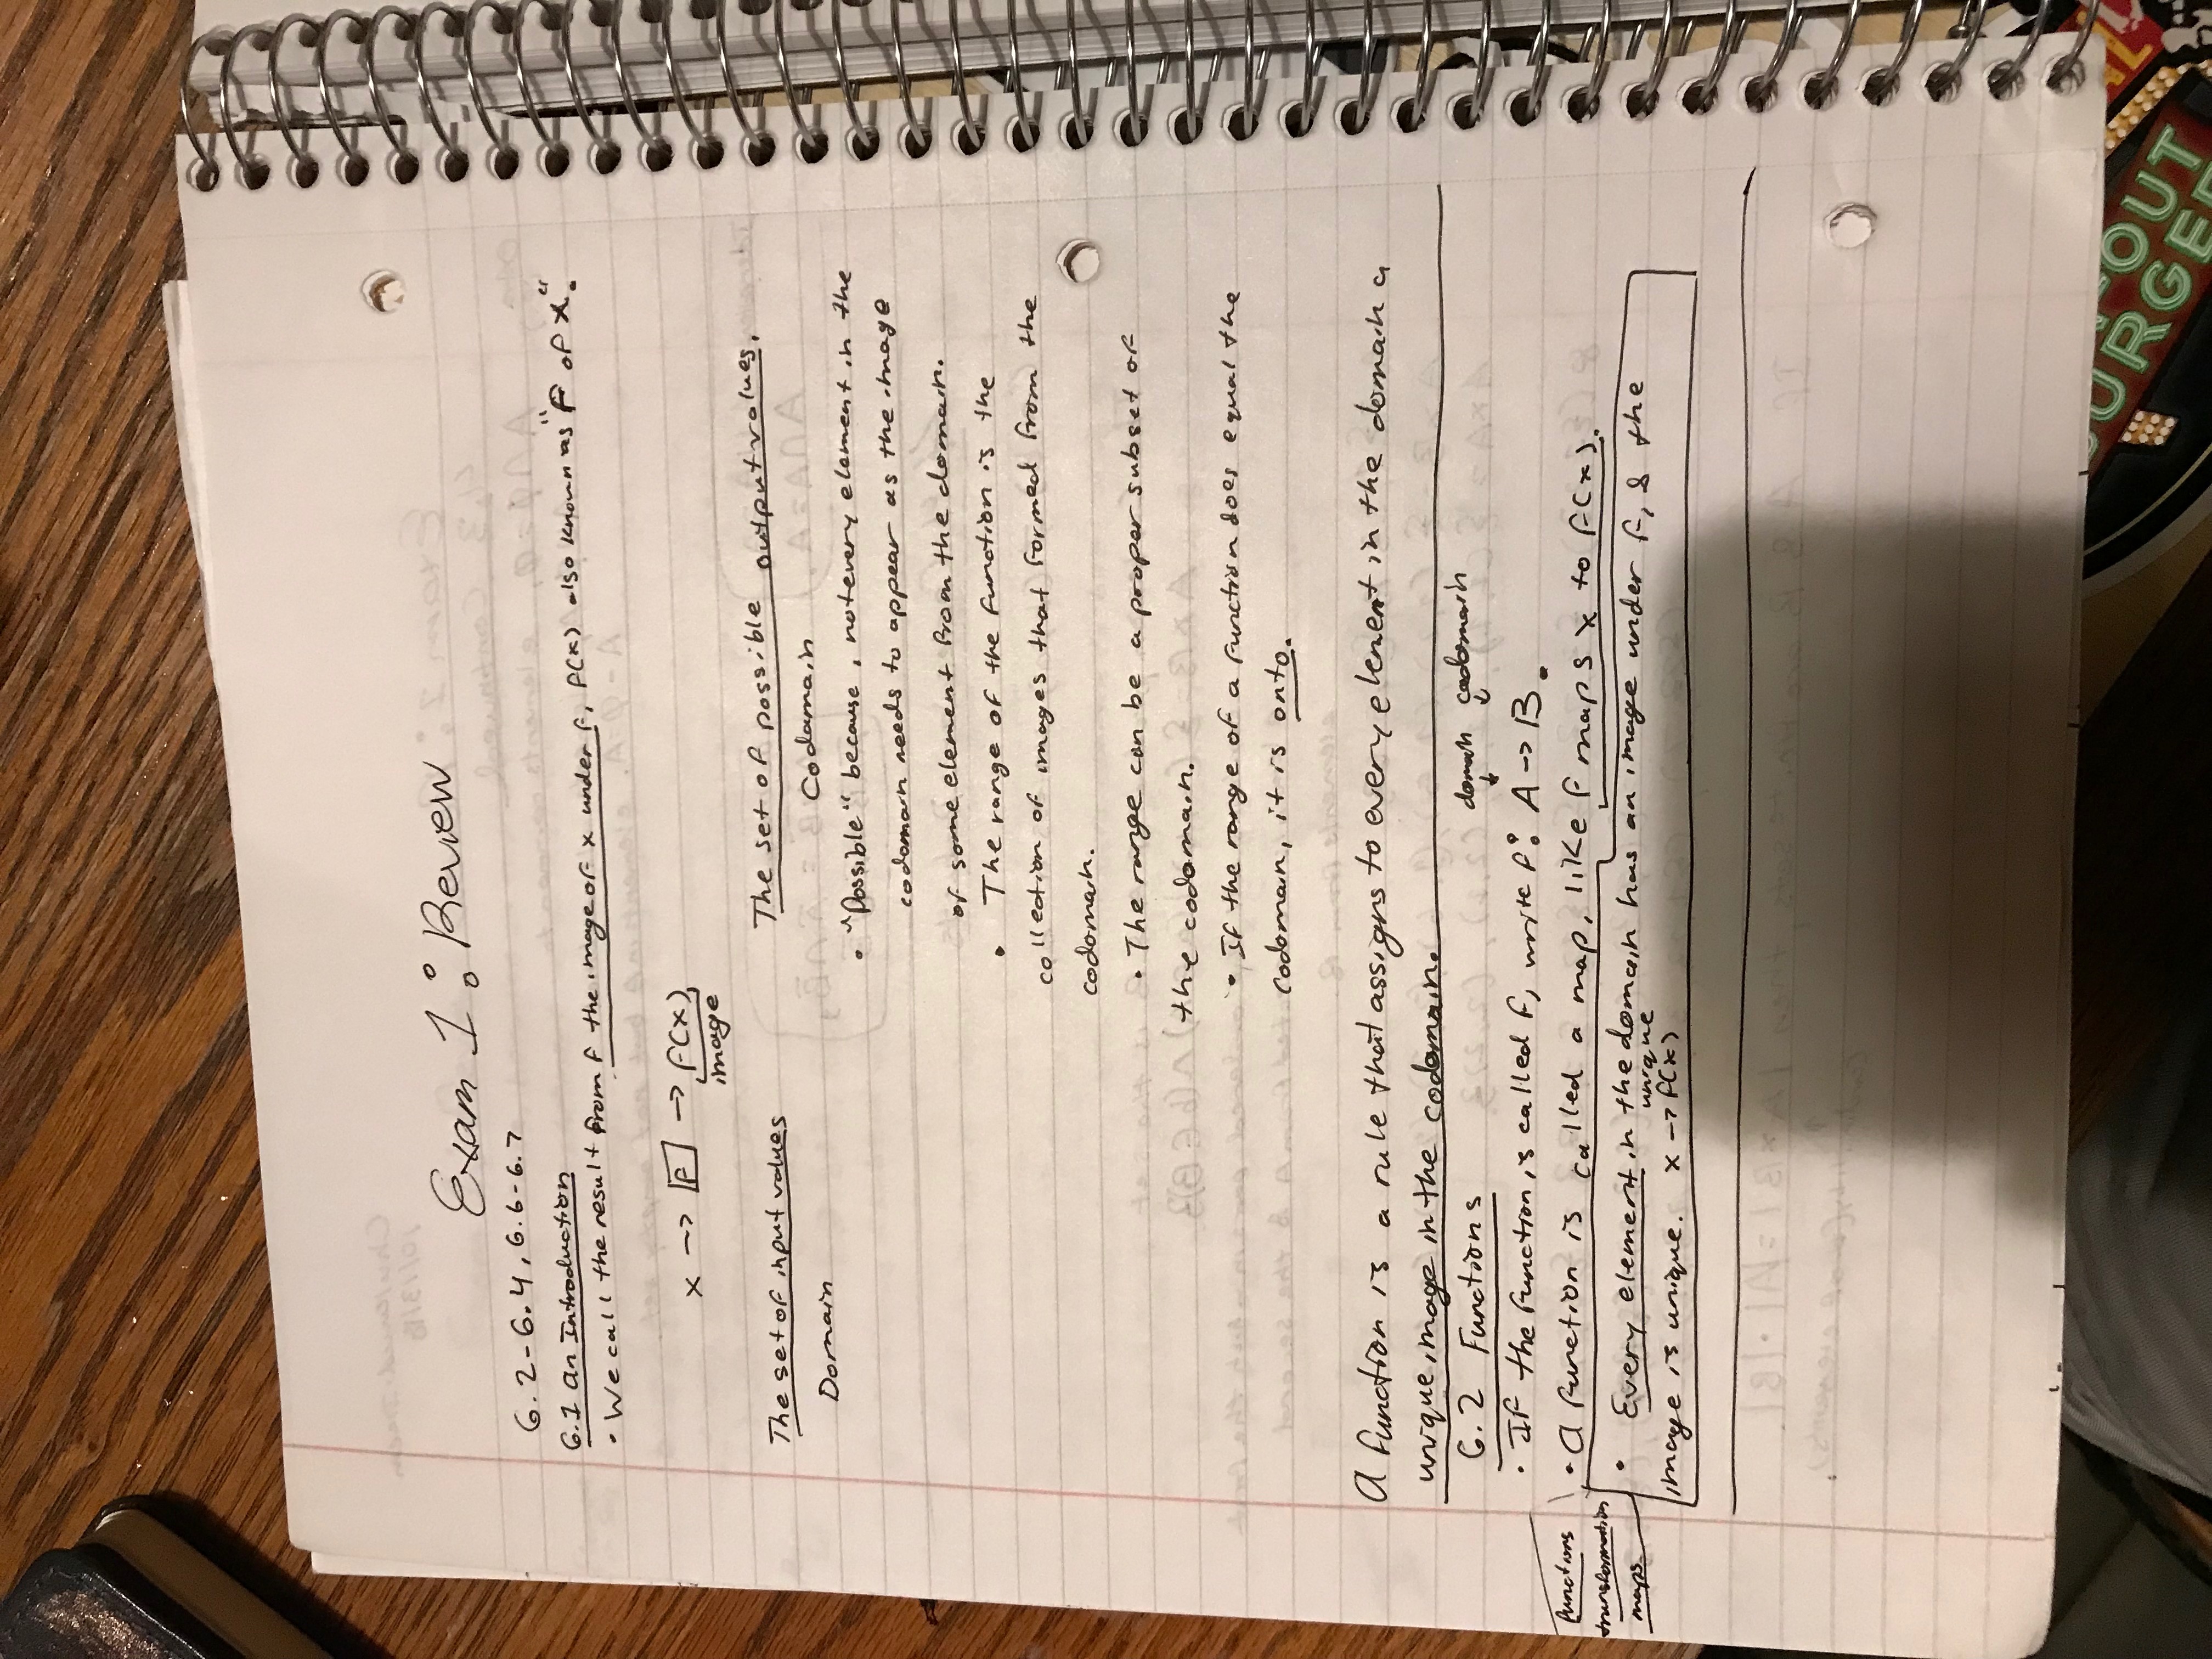 Exam 1: Review
6.2-6.4, 6.6-6.7
6.1 An Introduction
• We call the result from f the image of x under f, f(x) also known as "F of X".
x -> F -> f(x)
image
The set of input values
Domain
The set of possible output values.
Codamain
• "Possible" because, not every element in the
codomain needs to appear as the image
of some element from the domain.
• The range of the function is the
collection of images that formed from the
codomain.
• The range can be a proper subset of
the codomain.
• If the range of a function does equal the
codomain, it is onto.
A function is a rule that assigns to every element in the domain a
unique image in the codomain.
6.2 Functions
domain codomain
• If the function is called f, write f: A -> B.
• A function is called a map, like f maps x to f(x).
functions
transformation
maps
• Every element in the domain has an image under f, & the
unique
image is unique. x -> f(x)
OUT
URGE